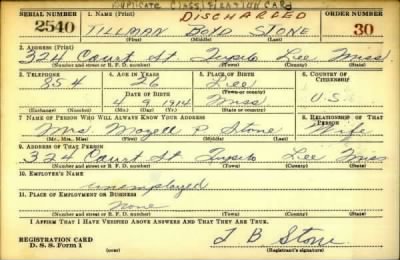 DUPLICATE CLASSIFICATION CARD
SERIAL NUMBER 1. NAME (Print) DISCHARGED ORDER NUMBER
2540 TILLMAN BOYD STONE 30
(First) (Middle) (Last)
2. ADDRESS (Print)
324 Court St Tupelo Lee Miss.
(Number and street or R. F. D. number) (Town) (County) (State)
3. TELEPHONE 4. AGE IN YEARS 5. PLACE OF BIRTH 6. COUNTRY OF CITIZENSHIP
854 26 Lee
DATE OF BIRTH (Town or county)
4 9 1914 Miss U.S.
(Exchange) (Number) (Mo.) (Day) (Yr.) (State or country)
7. NAME OF PERSON WHO WILL ALWAYS KNOW YOUR ADDRESS 8. RELATIONSHIP OF THAT PERSON
Mrs. Mozell P. Stone Wife
(Mr., Mrs., Miss) (First) (Middle) (Last)
9. ADDRESS OF THAT PERSON
324 Court St Tupelo Lee Miss
(Number and street or R. F. D. number) (Town) (County) (State)
10. EMPLOYER'S NAME
unemployed
11. PLACE OF EMPLOYMENT OR BUSINESS
none
(Number and street or R. F. D. number) (Town) (County) (State)
I AFFIRM THAT I HAVE VERIFIED ABOVE ANSWERS AND THAT THEY ARE TRUE.
REGISTRATION CARD
D. S. S. Form 1 T B Stone
(over) (Registrant's signature)